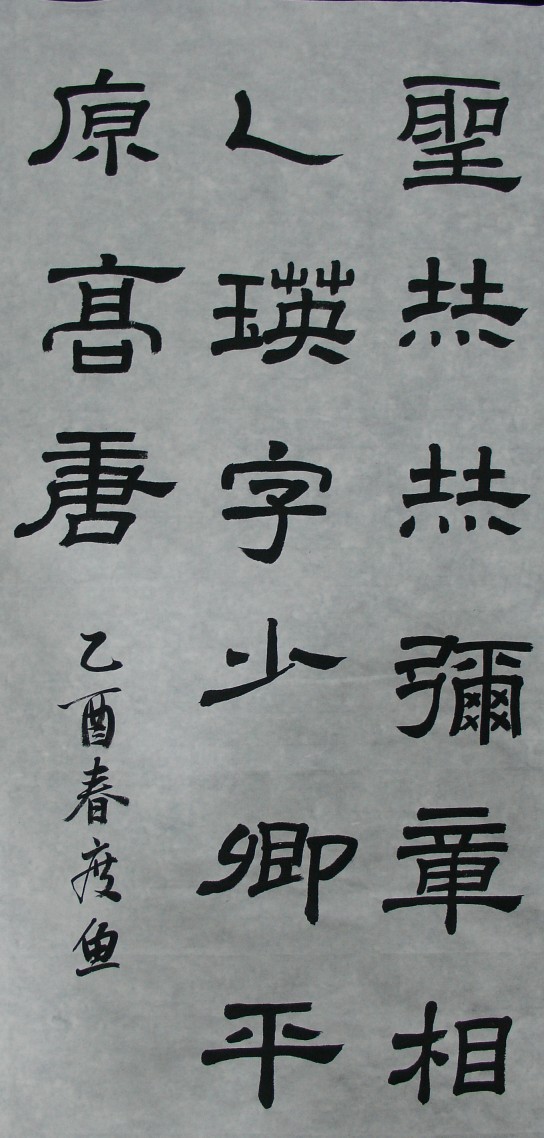 聖赫赫彌章相
人瑛字少卿平
原髙唐
乙酉春度鱼